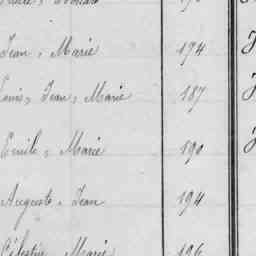 Jean, Marie 174
Louis, Jean, Marie 187
Emile, Marie 190
Auguste, Jean 194
Célestin, Marie 196